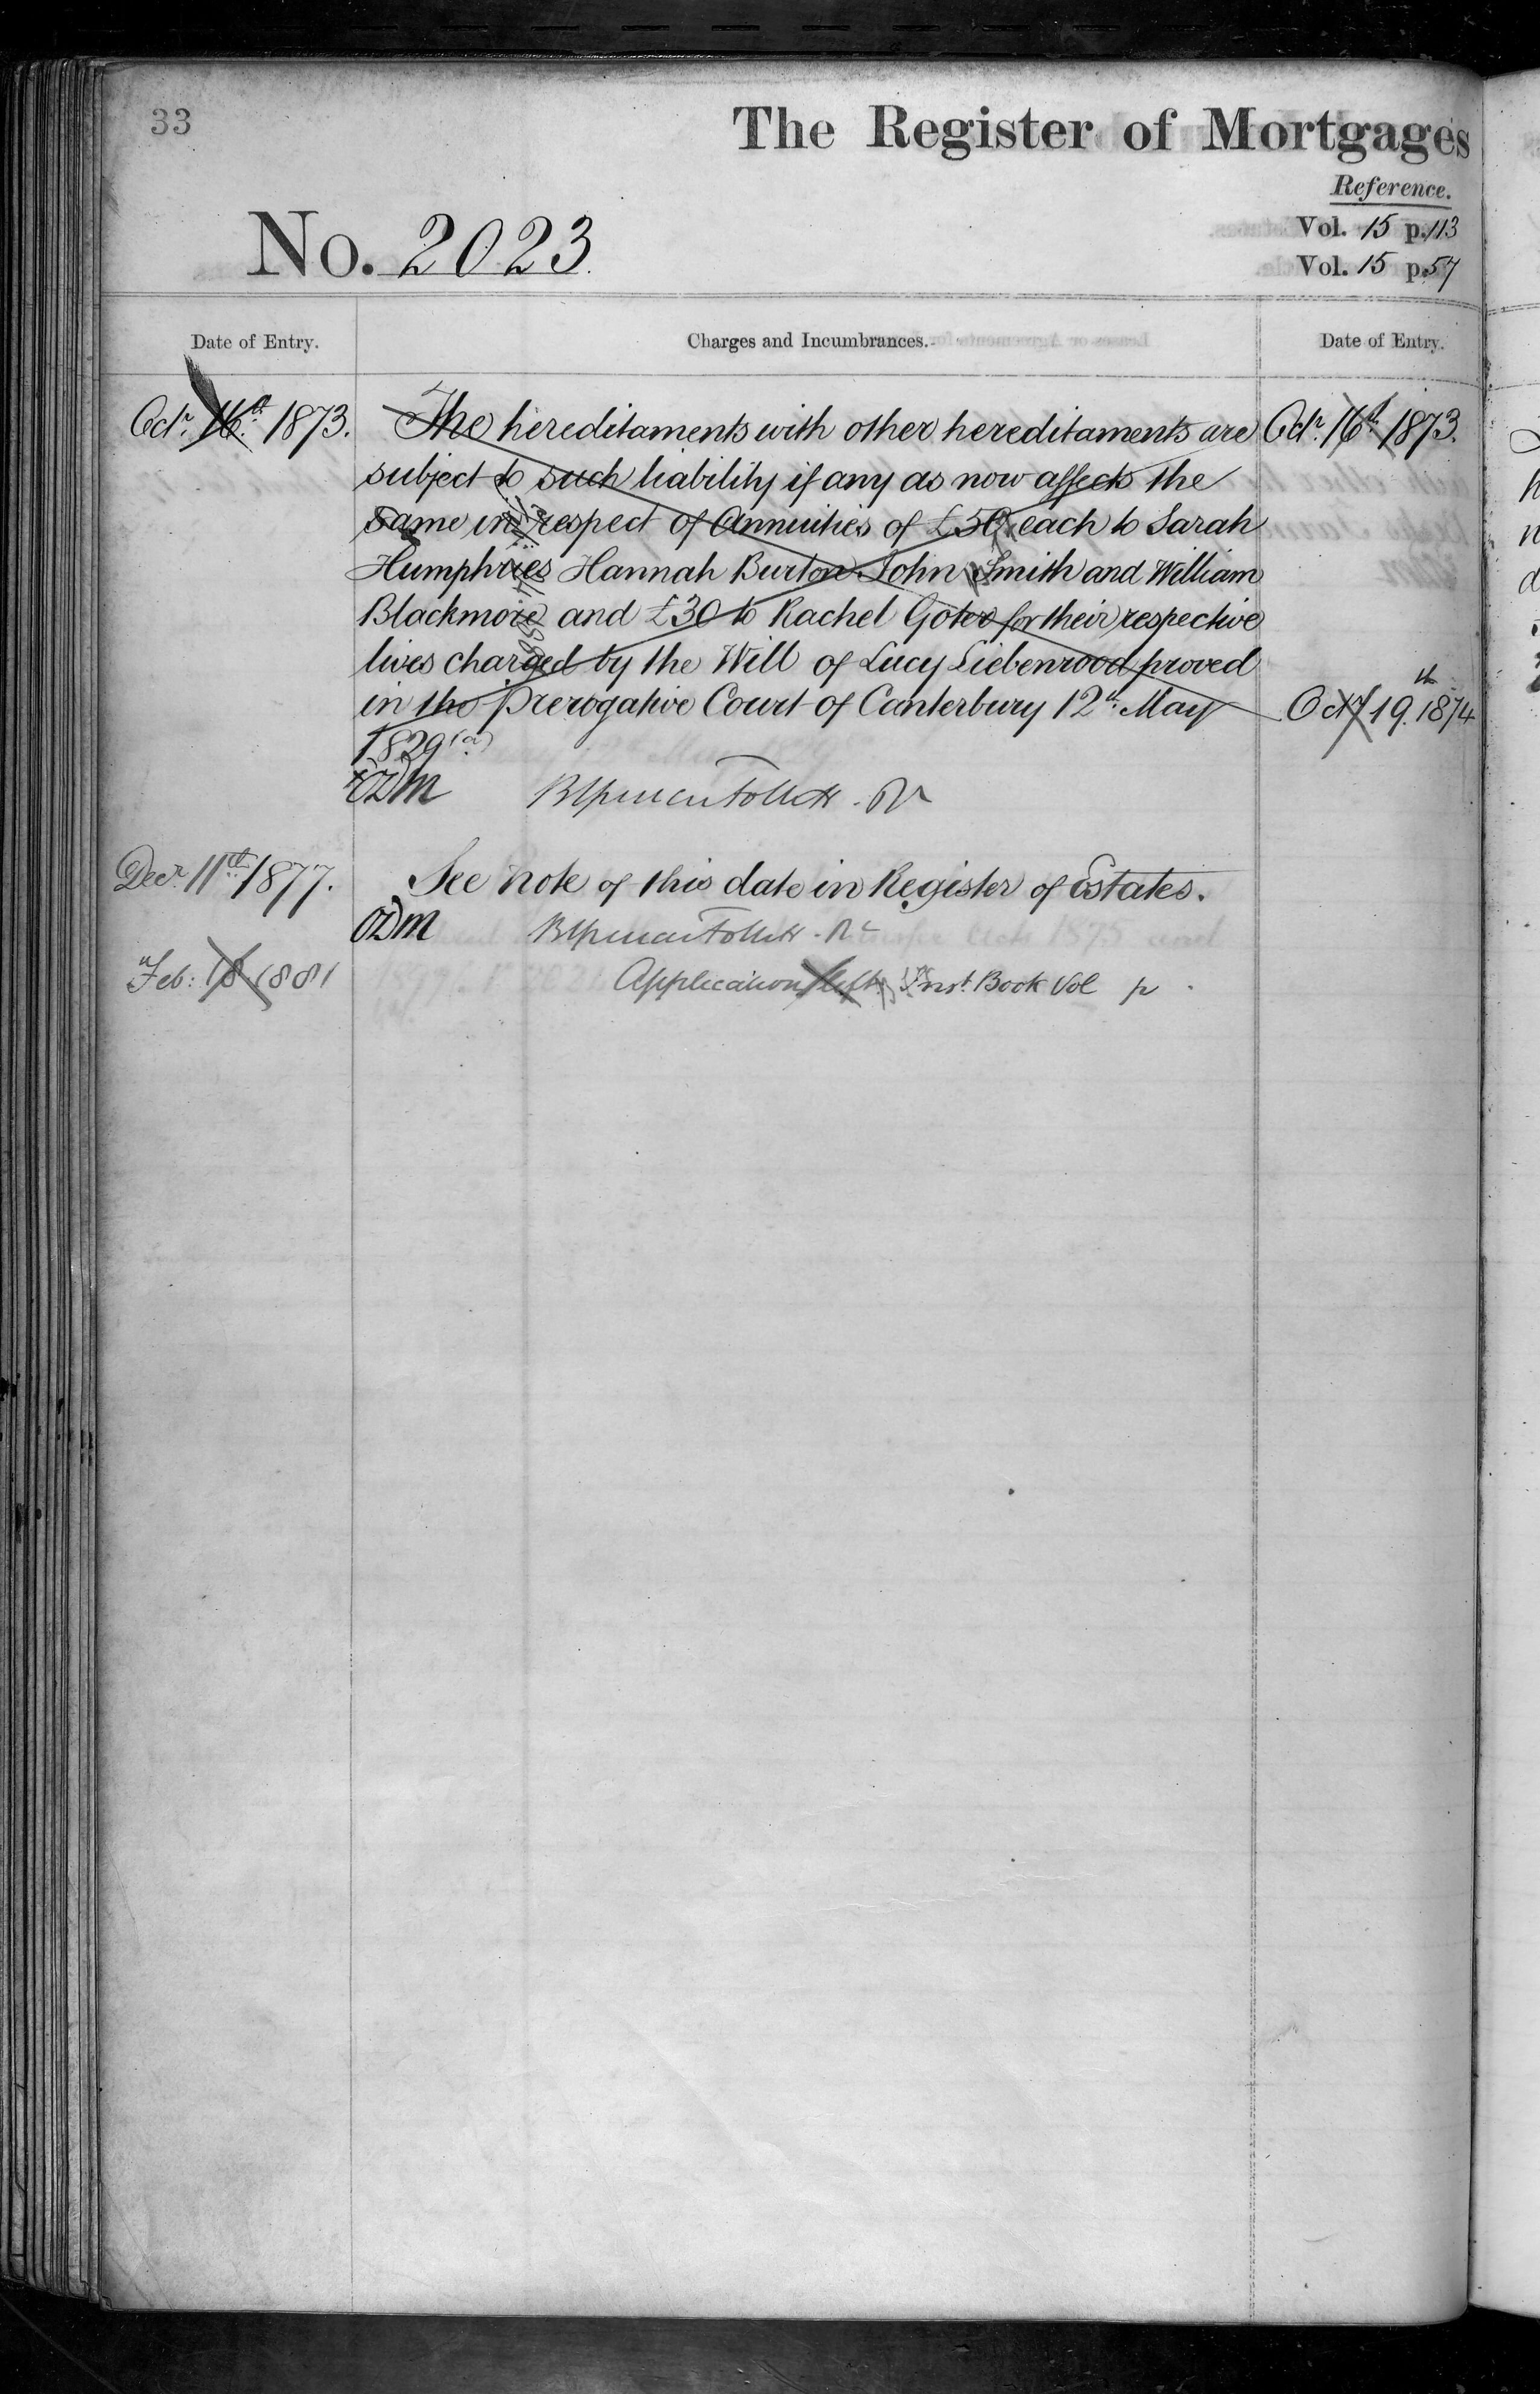 33
The Register of Mortgages
Reference.
Vol. 15 p. 113
No. 2023.
Vol. 15 p. 57
Date of Entry. Charges and Incumbrances. Date of Entry.
Octr. 16th 1873. The hereditaments with other hereditaments are Octr. 16th 1873.
subject to such liability if any as now affects the
same in respect of Annuities of £50 each to Sarah
Humphries Hannah Burton John Smith and William
Blackmore and £30 to Rachel Goter for their respective
lives charged by the Will of Lucy Liebenrood proved
in the Prerogative Court of Canterbury 12th May Octr 19th 1874
1829 (a)
Follett. Rr
Decr. 11th 1877. See note of this date in Register of Estates.
Follett. Rr
Feb: 18 1881 Application left Inst. Book Vol p.